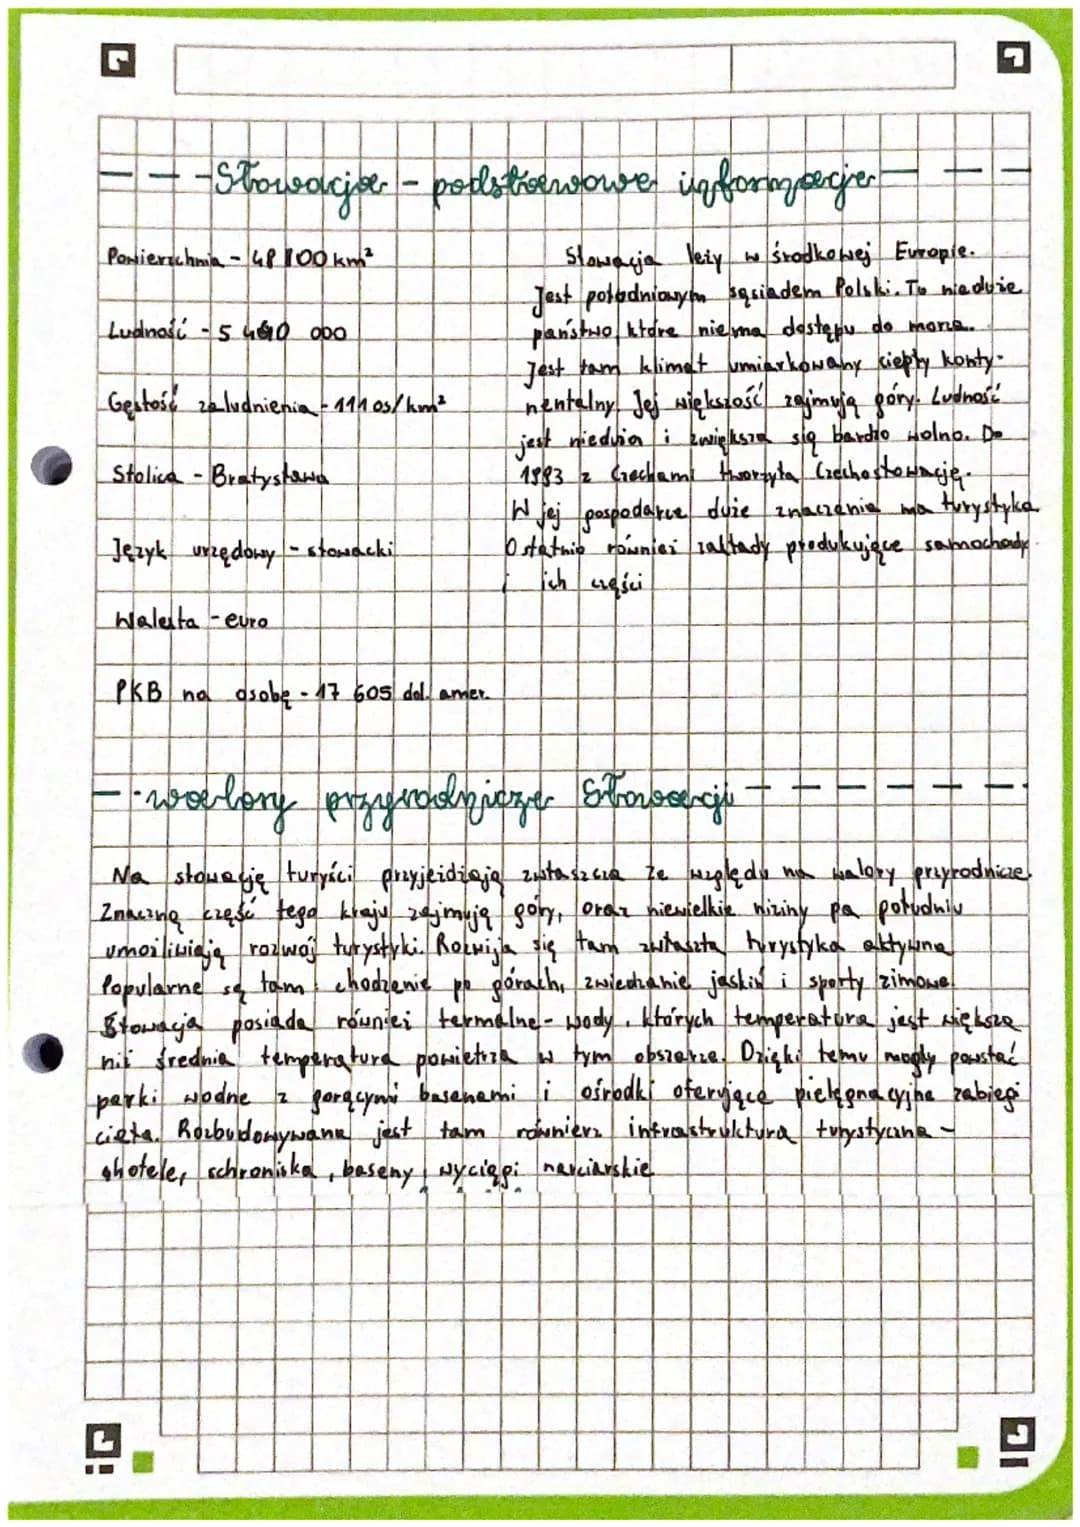 Słowacja - podstawowe informacje
Powierzchnia - 48 100 km²
Ludność - 5 440 000
Gęstość zaludnienia - 111 os/km²
Stolica - Bratysława
Język urzędowy - słowacki
Waluta - euro
PKB na osobę - 17 605 dol. amer.
Słowacja leży w środkowej Europie.
Jest południowym sąsiadem Polski. To nieduże
państwo, które nie ma dostępu do morza.
Jest tam klimat umiarkowany ciepły konty-
nentalny. Jej większość zajmują góry. Ludność
jest nieduża i zwiększa się bardzo wolno. Do
1993 z Czechami tworzyła Czechosłowację.
W jej gospodarce duże znaczenie ma turystyka
Ostatnio również zakłady produkujące samochody
i ich części
walory przyrodnicze Słowacji
Na słowację turyści przyjeżdżają zwłaszcza ze względu na walory przyrodnicze.
Znaczną część tego kraju zajmują góry, oraz niewielkie niziny pa południu
umożliwiają rozwój turystyki. Rozwija się tam zwłaszta turystyka aktywna
Popularne są tam: chodzenie po górach, zwiedzanie jaskiń i sporty zimowe.
Słowacja posiada również termalne - wody, których temperatura jest większa
niż średnia temperatura powietrza w tym obszarze. Dzięki temu mogły powstać
parki wodne z gorącymi basenami i ośrodki oferujące pielęgnacyjne zabiegi
ciała. Rozbudowywana jest tam równierz infrastruktura turystyczna -
ghotele, schroniska, baseny, wyciągi narciarskie